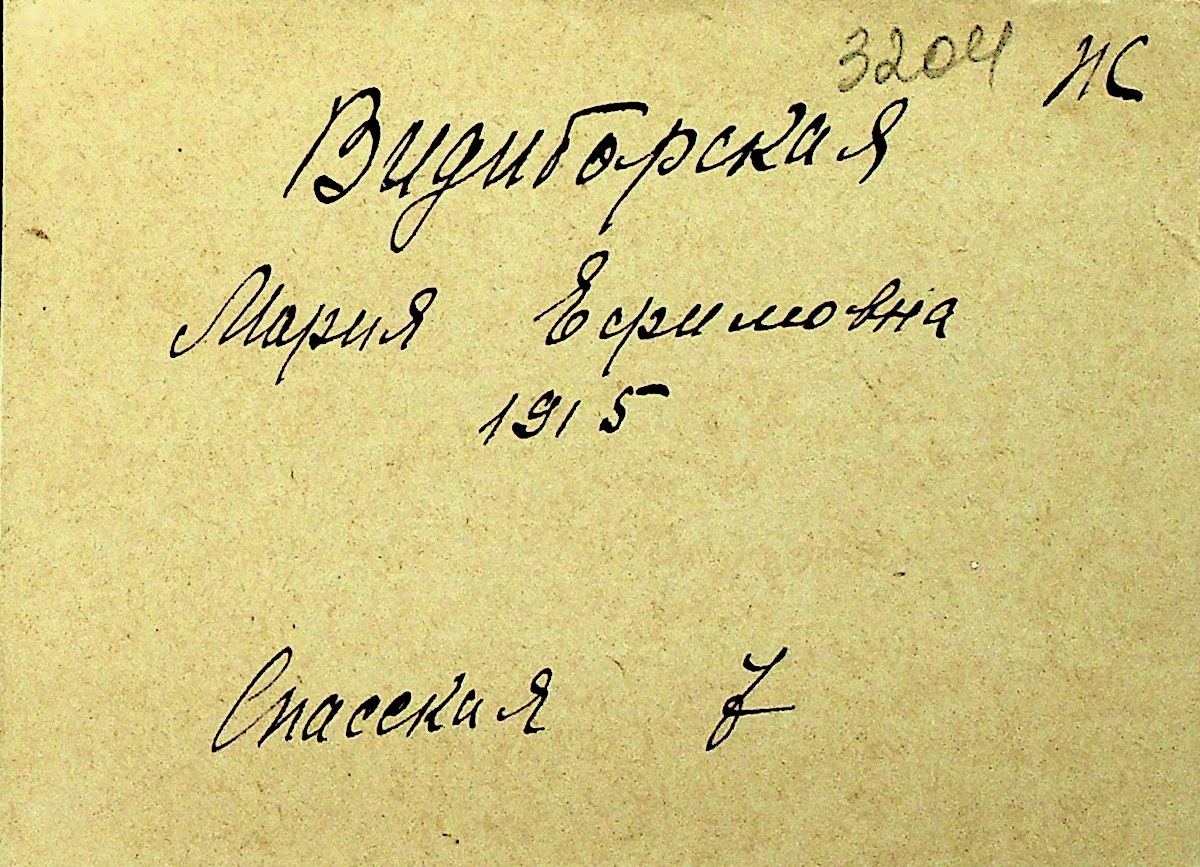 3204 ИС
Видиборская
Мария Ефимовна
1915
Спасская 7